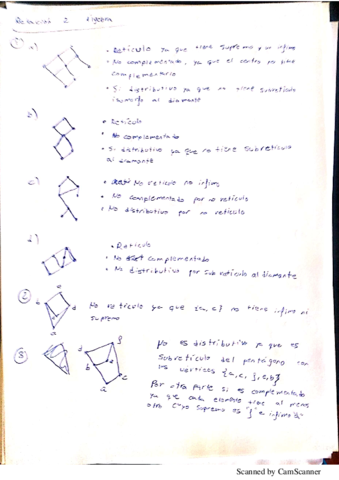 Relación 2 Algebra
① a)
• Reticulo ya que tiene supremo y un infimo
• No complementado, ya que el centro no tiene
complementario
• Si distributivo ya que no tiene subreticulo
isomorfo al diamante
b)
• Reticulo
• No complementado
• Si distributivo ya que no tiene subreticulo
al diamante
c)
• No reticulo no infimo
• No complementado por no reticulo
• No distributivo por no reticulo
d)
• Reticulo
• No complementado
• No distributivo por sub reticulo al diamante
②
No reticulo ya que {a, c} no tiene infimo ni
supremo
③
No es distributivo ya que es
subreticulo del pentágono con
los vertices
Por otra parte si es complementado
ya que cada elemento tiene al menos
otro cuyo supremo es "f" e infimo "a"
Scanned by CamScanner